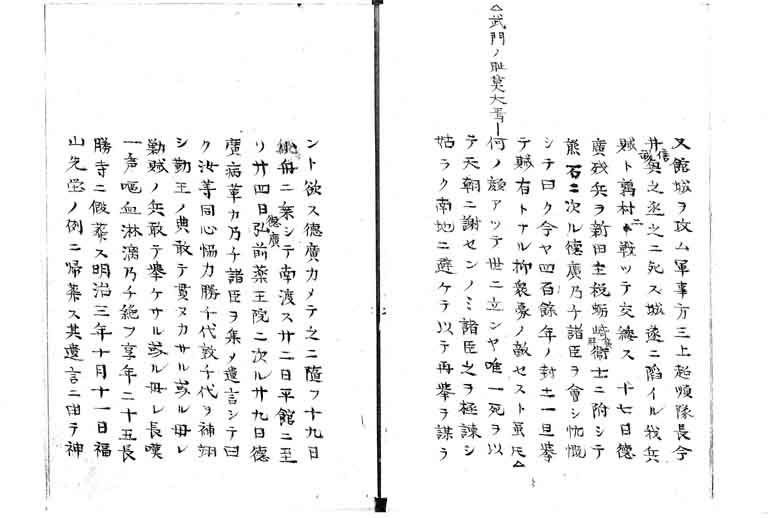 △武門ノ耻莫大焉
又館城ヲ攻ム軍事方三上超順隊長今
井興之丞之ニ死ス城遂ニ陥イル我兵
賊ト鶉村ニ戰ツテ交綏ス十七日德
廣残兵ヲ新田主税蛎崎衛士ニ附シテ
熊石ニ次ル德廣乃チ諸臣ヲ會シ忼慨
シテ曰ク今ヤ四百餘年ノ封土一旦擧
テ賊有トナル抑衆寡ノ敵セスト虽氏△
何ノ顔アツテ世ニ立ンヤ唯一死ヲ以
テ天朝ニ謝センノミ諸臣之ヲ極諌シ
姑ラク南地ニ避ケテ以テ再擧ヲ謀ラ
ント欲ス德廣カメテ之ニ隨フ十九日
舟ニ乗シテ南渡ス廿二日平館ニ至
リ廿四日弘前薬王院ニ次ル廿九日德
廣病革カ乃チ諸臣ヲ集メ遺言シテ曰
ク汝等同心恊力勝千代敦千代ヲ補翊
シ勤王ノ典敢テ貫ヌカサル或ル毋レ
勤賊ノ兵敢テ擧ケサル或ル毋レ長嘆
一声嘔血淋漓乃チ絶フ享年二十五長
勝寺ニ假葬ス明治三年十月十一日福
山先塋ノ例ニ帰葬ス其遺言ニ由テ神